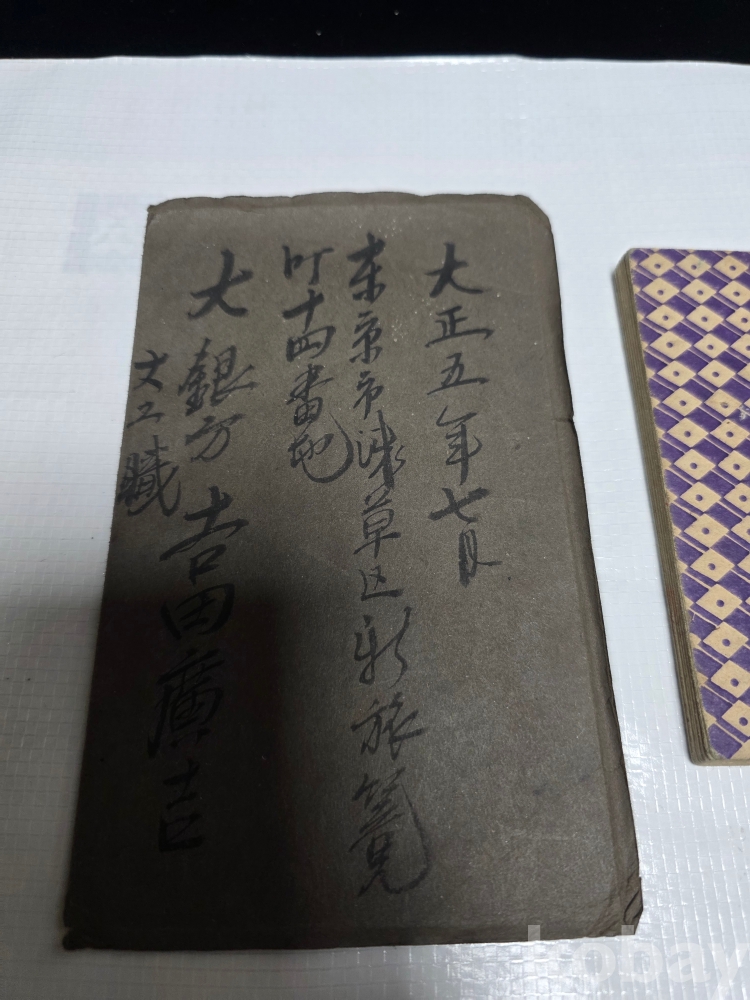 大正五年七月
東京市浅草区新旅籠
町十四番地
大銀方 吉田廣吉
大工職
obay